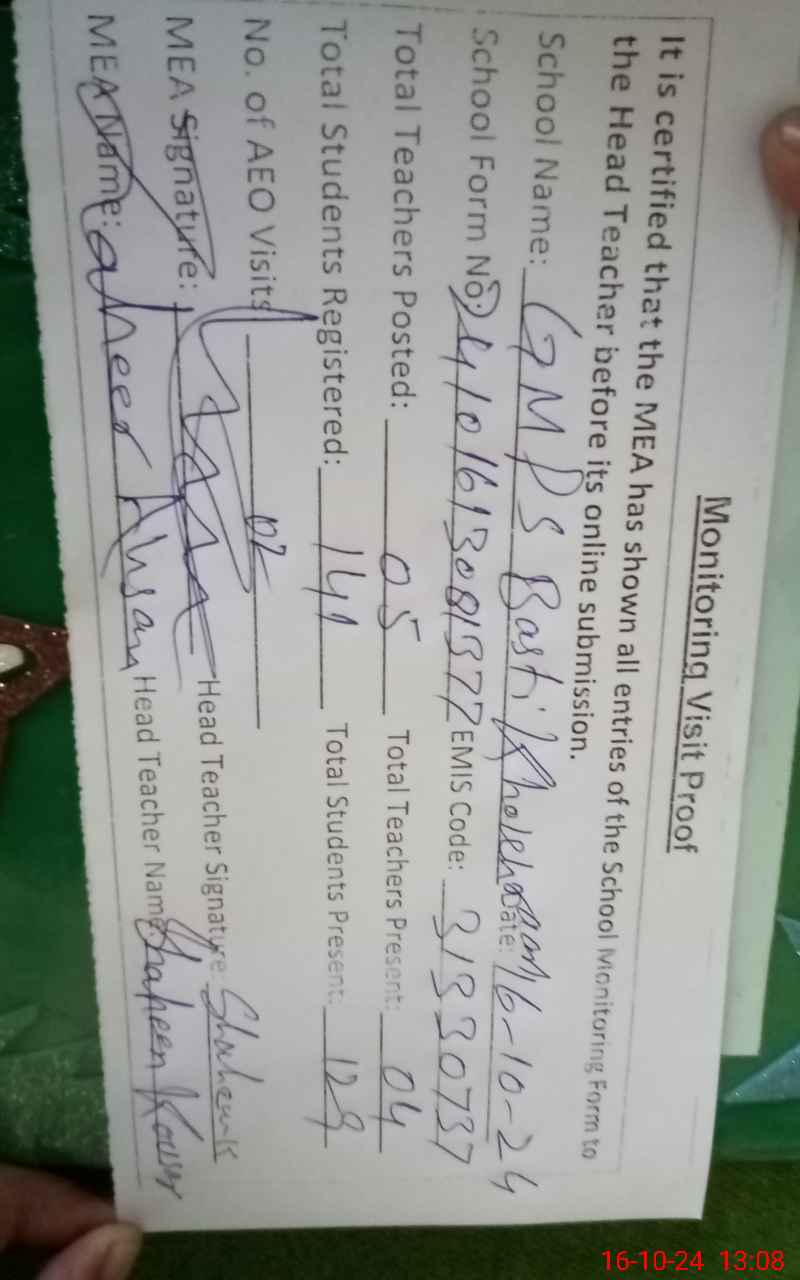 Monitoring Visit Proof
It is certified that the MEA has shown all entries of the School Monitoring Form to
the Head Teacher before its online submission.
School Name: GMPS Basti Date: 16-10-24
School Form No: EMIS Code: 31330737
Total Teachers Posted: 05 Total Teachers Present: 04
Total Students Registered: 141 Total Students Present: 129
No. of AEO Visits 02
MEA Signature: Head Teacher Signature: Shaheen K
MEA Name: Aheer Ahsan Head Teacher Name Shaheen Kausar
16-10-24 13:08